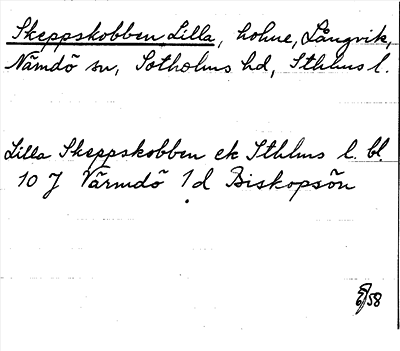 Skeppskobben, Lilla, holme, Långvik,
Nämdö sn, Sotholms hd, Sthlms l.
Lilla Skeppskobben ek Sthlms l. bl.
10 J Värmdö 1d Biskopsön
58